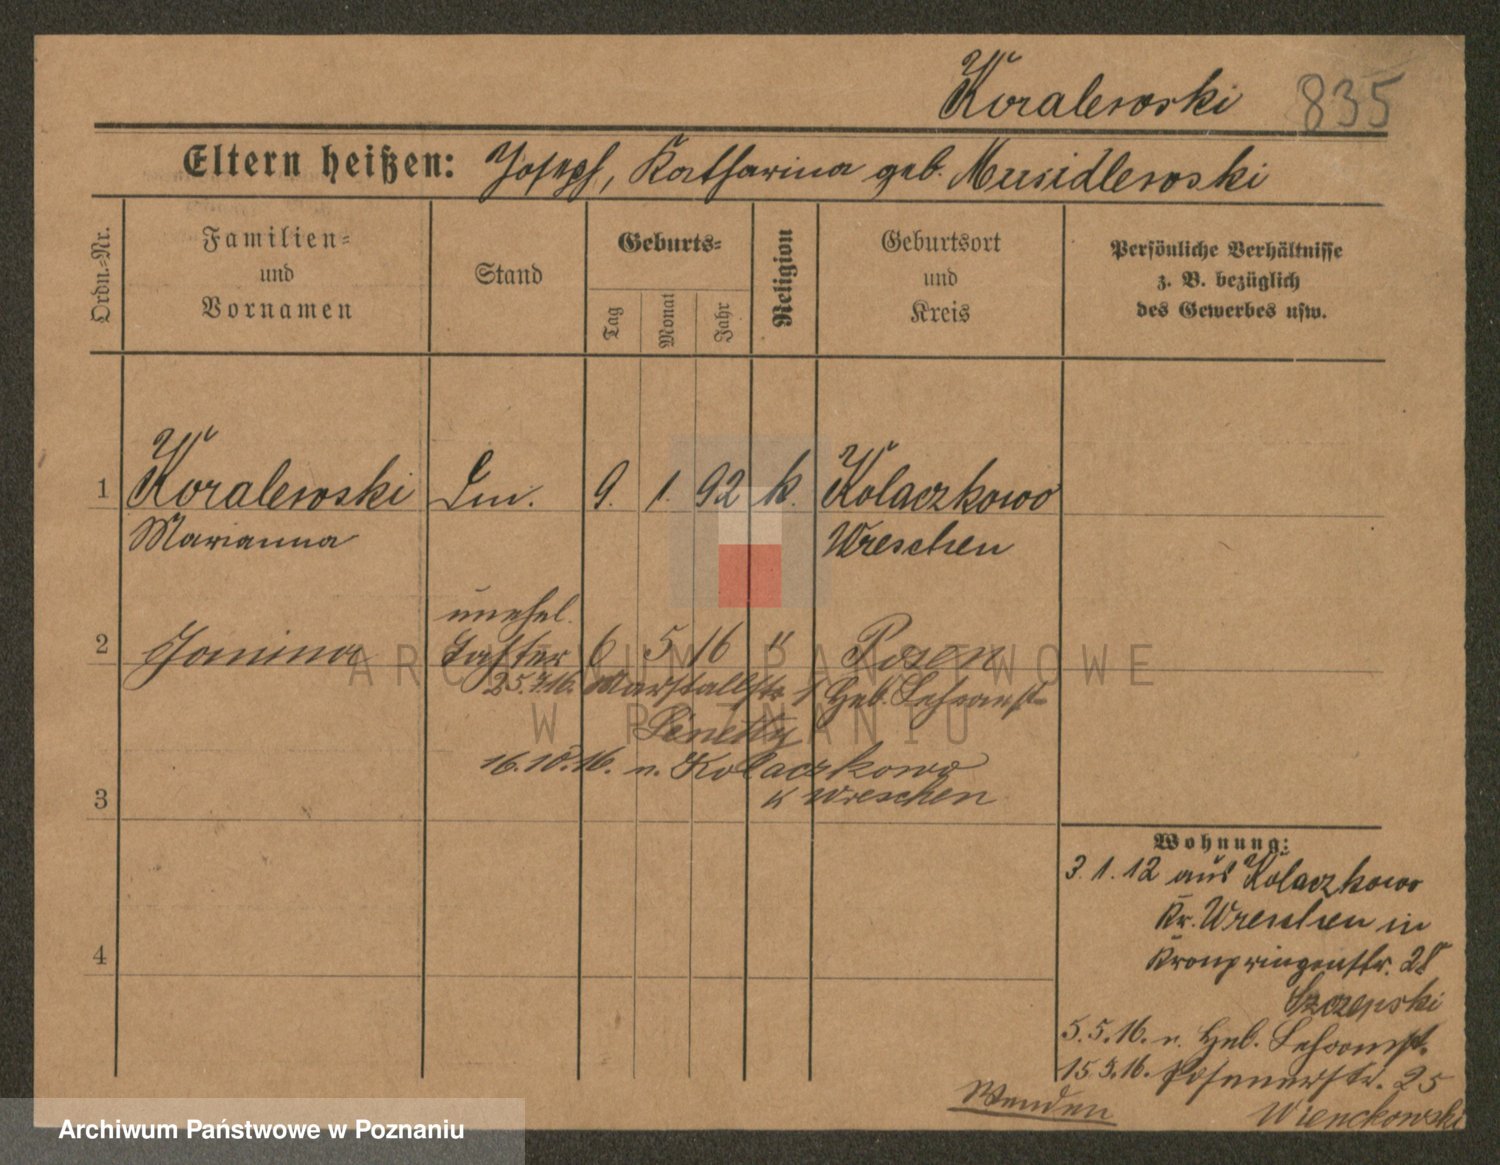 Koralewski 835
Eltern heißen: Joseph, Katharina geb. Musidlewski
Ordn.-Nr.
Familien-
und
Vornamen
Stand
Geburts-
Tag
Monat
Jahr
Religion
Geburtsort
und
Kreis
Persönliche Verhältnisse
z. B. bezüglich
des Gewerbes usw.
1 Koralewski 9. 1. 92 k. Kolaczkowo
Marianna Wreschen
unehel.
2 Janina Tochter 6 5 16 " Posen
25.7.16. Marstallstr. 1 Geb. Lehranst.
16.10.16. n. Kolaczkowo
K Wreschen
3
4
Wohnung:
3.1.12 aus Kolaczkowo
Kr. Wreschen in
Kronprinzenstr. 28
Szczepski
5.5.16. n. Geb. Lehranst.
15.5.16. Posenerstr. 25
Wienckowski
Wenden
ARCHIWUM PAŃSTWOWE
W POZNANIU
Archiwum Państwowe w Poznaniu